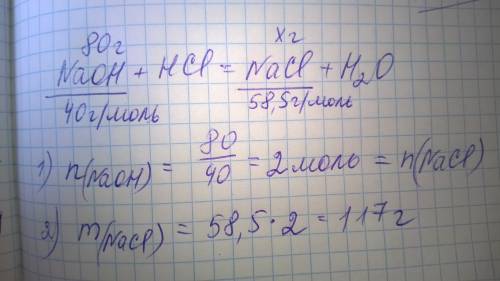 80г хг
NaOH + HCl = NaCl + H₂O
40г/моль 58,5г/моль
1) n(NaOH) = 80/40 = 2моль = n(NaCl)
2) m(NaCl) = 58,5·2 = 117г